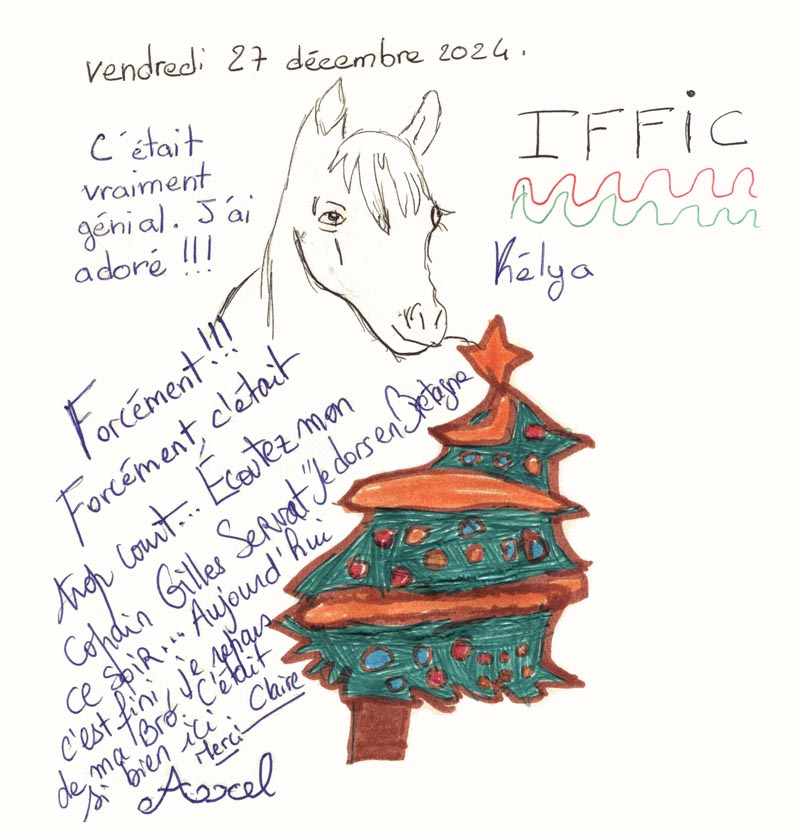 vendredi 27 décembre 2024.
IFFIC
C'était
vraiment
génial. J'ai
adoré !!!
Kélya
Forcément !!!
Forcément, c'était
trop court... Écoutez mon
copain Gilles Servat "Je dors en Bretagne
ce soir... Aujourd'hui
c'est fini, je repars
de ma Bro. C'était
si bien ici.
Merci Claire
Axxel